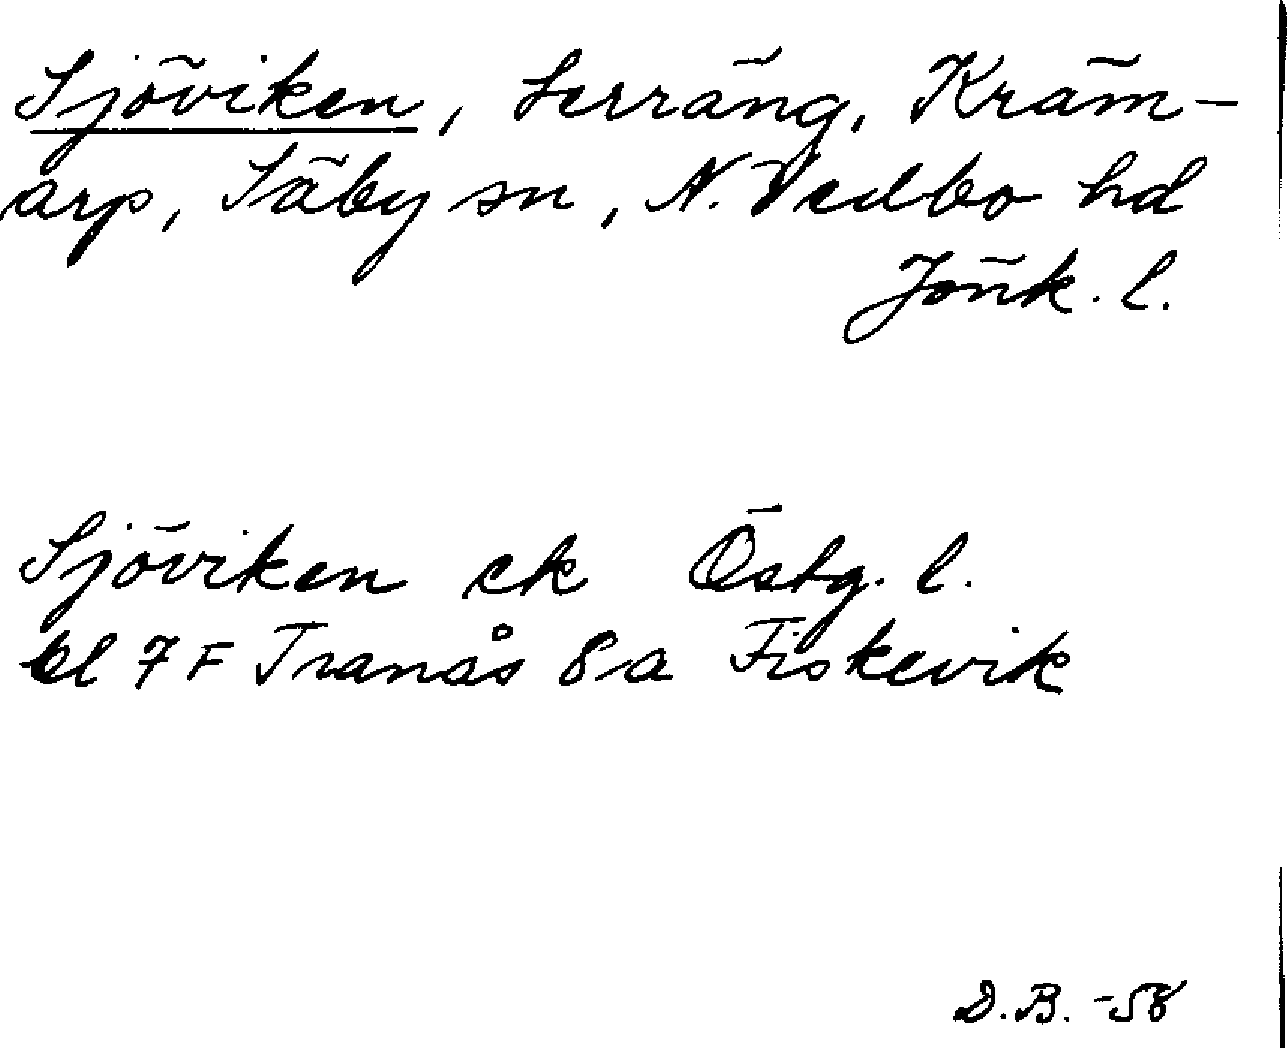 Sjöviken, Lerräng, Kräm-
arp, Säby sn, N. Vedbo hd
Jönk. l.
Sjöviken ek Östg. l.
bl 7 F Tranås 8a Fiskevik
D.B. -58